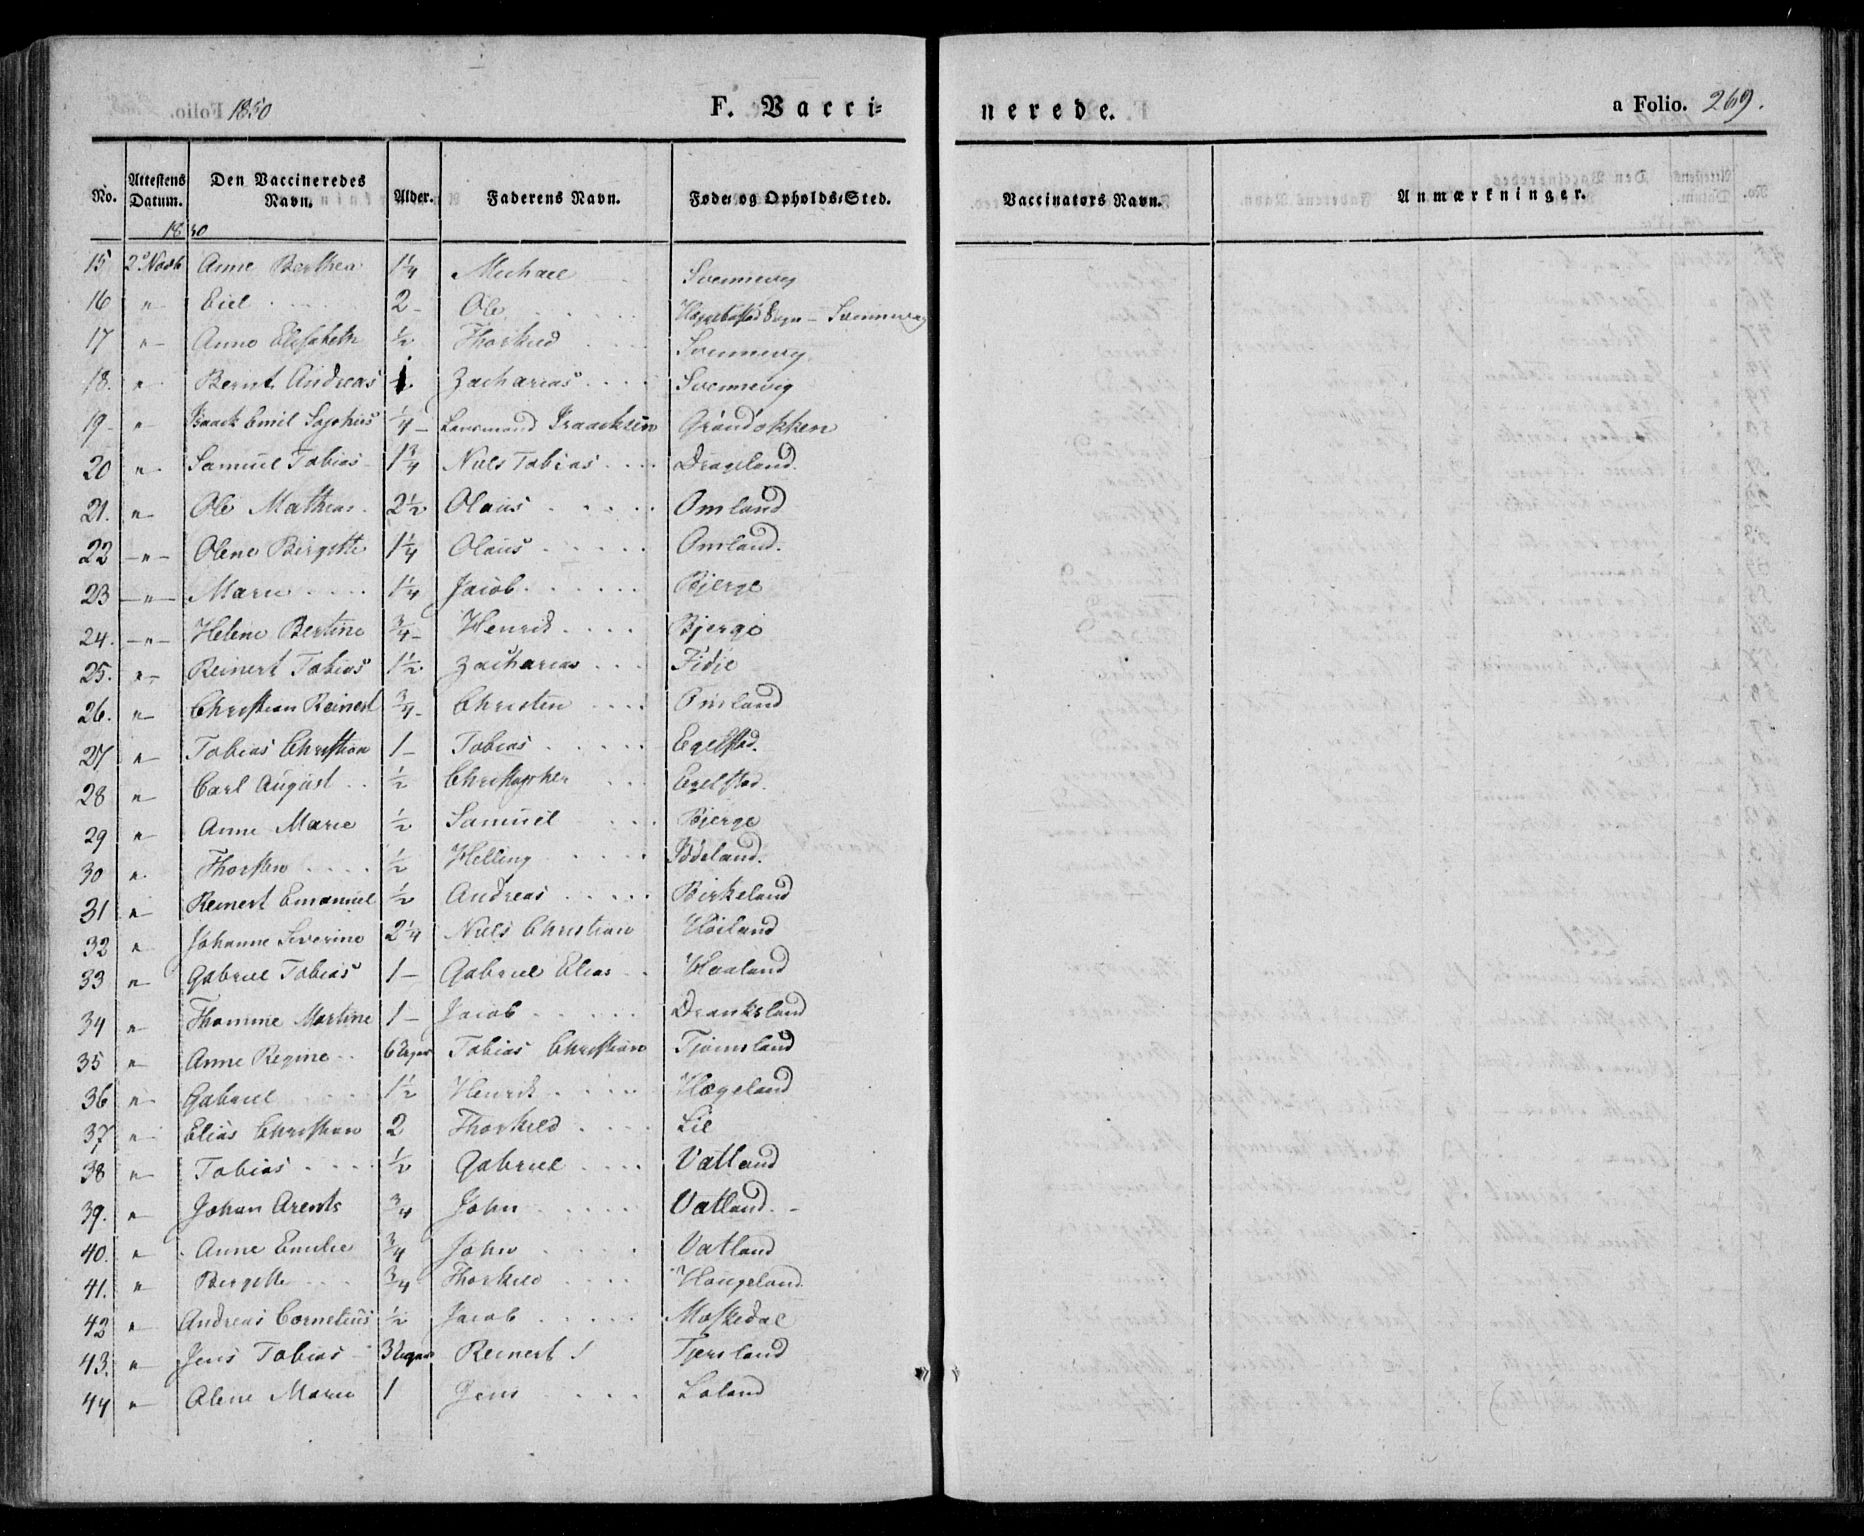 1850 F. Vacci= nerede. a Folio. 269.
No. Attestens Datum. Den Vaccineredes Navn. Alder. Faderens Navn. Føde- og Opholds-Sted. Vaccinators Navn. Anmærkninger.
1850
15 2 Novb Anne Berthea 1¼ Michael Svennevig
16 " Eiel 2 - Ole Sogn - Svennevig
17 " Anne Elisabeth ½ Thorkild Svennevig
18. " Bernt Andreas Zacharias Svennevig
19 - " Isaack Emil Sophus ¼ Lensmand Isaacksen Grøndokken
20 " Samuel Tobias 1¾ Niels Tobias Drageland.
21. " Ole Mathias 2½ Olaus Omland
22 " Olene Birgitte 1¼ Olaus Omland.
23 " Marie 1¼ Jacob Bjerge
24. " Helene Bertine ¾ Henrik Bjerge
25. " Reinert Tobias 1½ Zacharias Fidje
26. " Christian Reinert ¾ Christen Omland
27 " Tobias Christian 1 - Tobias Egelstad.
28 " Carl August ½ Christopher Egelstad.
29 " Anne Marie ½ Samuel Bjerge
30 " Thorsten ½ Helling Ødeland.
31 " Reinert Emanuel ½ Andreas Birkeland
32 " Johanne Severine 2¼ Niels Christian Høiland
33 " Gabriel Tobias 1 - Gabriel Elias Haaland
34 " Thomine Martine 1 - Jacob Dranksland
35 " Anne Regine 6 Uger Tobias Christian Tjomsland
36 " Gabriel 1½ Henrik Hægeland
37 " Elias Christian 2 Thorkild Lie
38 " Tobias ½ Gabriel Vatland
39. " Johan Arents ¾ John Vatland.
40. " Anne Emilie ¾ John Vatland
41. " Bergitte ¾ Thorkild Haugeland
42 " Andreas Cornelius ½ Jacob Moskedal
43. " Jens Tobias 3 Uger Reinert Tjersland
44 " Alene Marie 1 Jens Loland